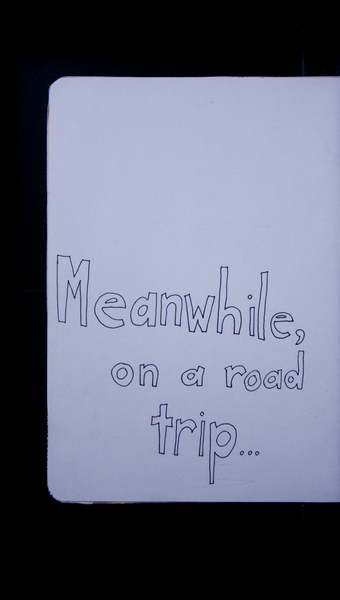 Meanwhile,
on a road
trip...